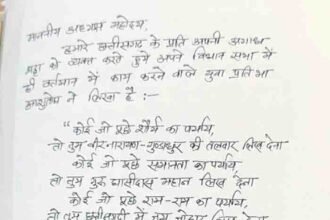 माननीय अध्यक्ष महोदय,
हमारे छत्तीसगढ़ के प्रति अपनी अगाध
श्रद्धा को व्यक्त करते हुये अपने विधान सभा में
ही वर्तमान में काम करने वाले युवा प्रतिभा
ने लिखा है :-
"कोई जो पूछे शौर्य का पर्याय,
तो तुम वीरनारायण-गुण्डाधुर की तलवार लिख देना
कोई जो पूछे समानता का पर्याय
तो तुम गुरु घासीदास महान लिख देना
कोई जो पूछे राम-राम का पर्याय,
तो तुम छत्तीसगढ़ी में जय जोहार लिख देना